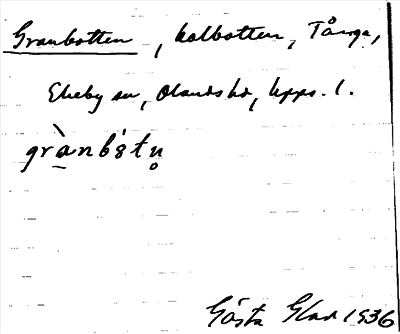 Granbotten, kolbotten, Tånga,
Ekeby sn, Olands hd, Upps. l.
grànbòtn̥
Gösta Glad 1936